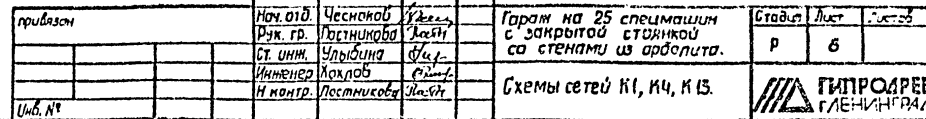 привязан
Инв. №
Нач. отд. Чесноков
Рук. гр. Постникова
Ст. инж. Улыбина
Инженер Хохлов
Н контр. Постникова
Гараж на 25 спецмашин
с закрытой стоянкой
со стенами из арболита.
Схемы сетей К1, К4, К13.
Стадия Лист Листов
Р 6
ГИПРОДРЕВ
г. ЛЕНИНГРАД